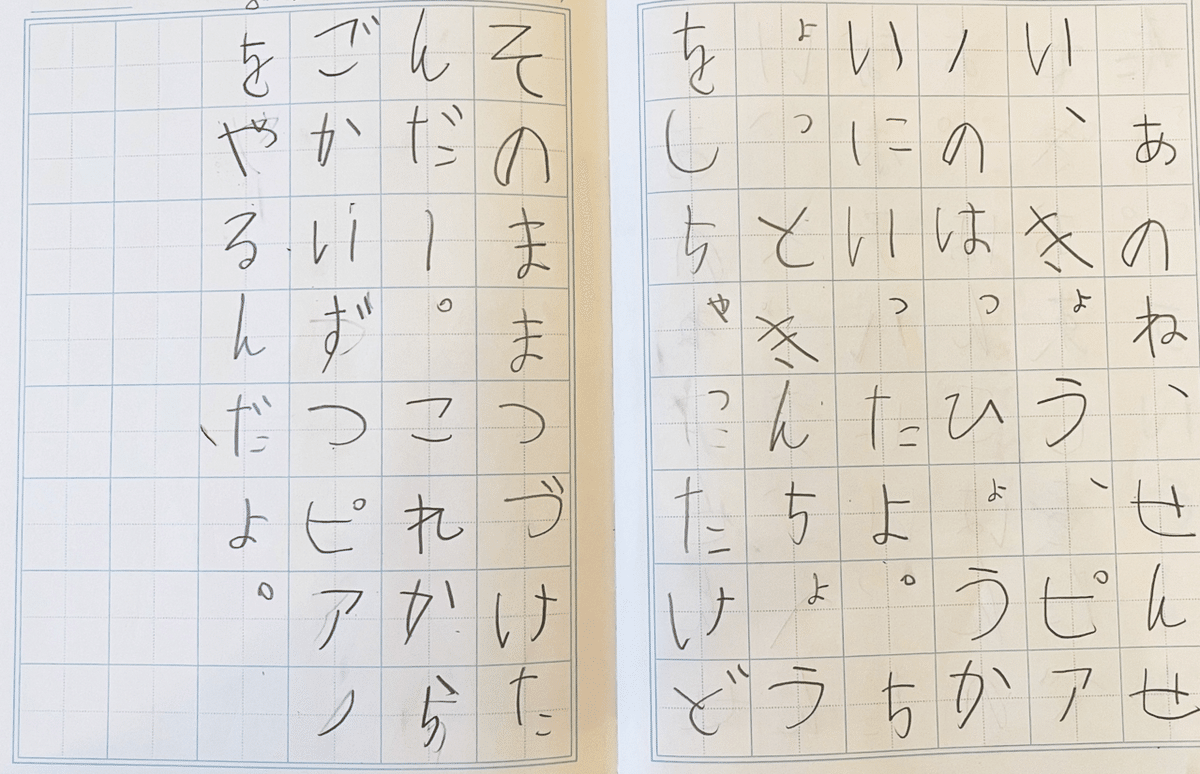 あのね、せんせ
い、きょう、ピア
ノのはっひょうか
いにいったよ。ち
ょっときんちょう
をしちゃったけど
そのままつづけた
んだー。これから
ごかいずつピアノ
をやるんだよ。